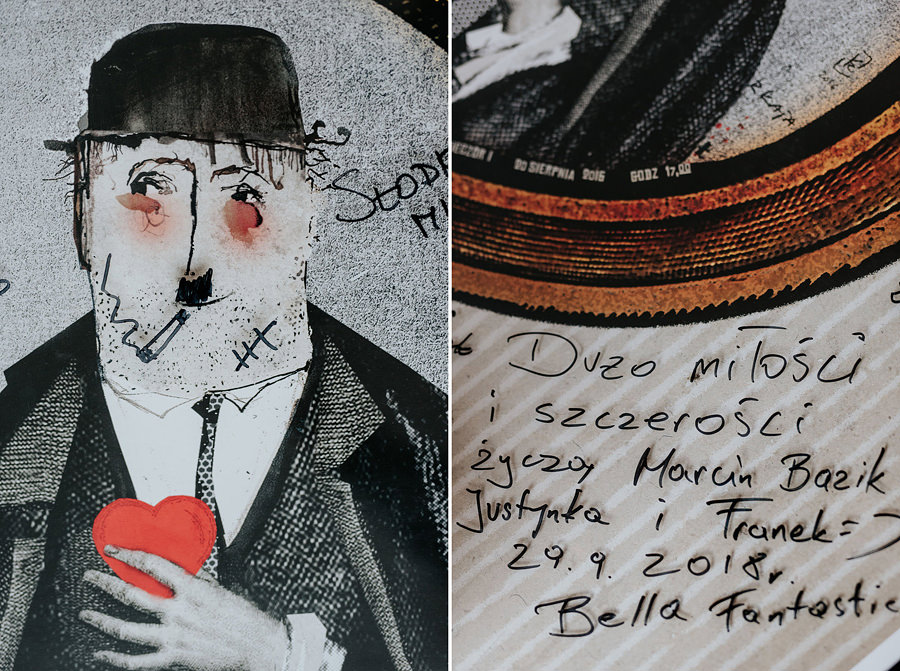 SŁODK
MI
30 SIERPNIA 2015 GODZ 17,00
Dużo miłości
i szczerości
życzą Marcin Bazik
Justynka i Franek =)
29.9.2018r.
Bella Fantastic